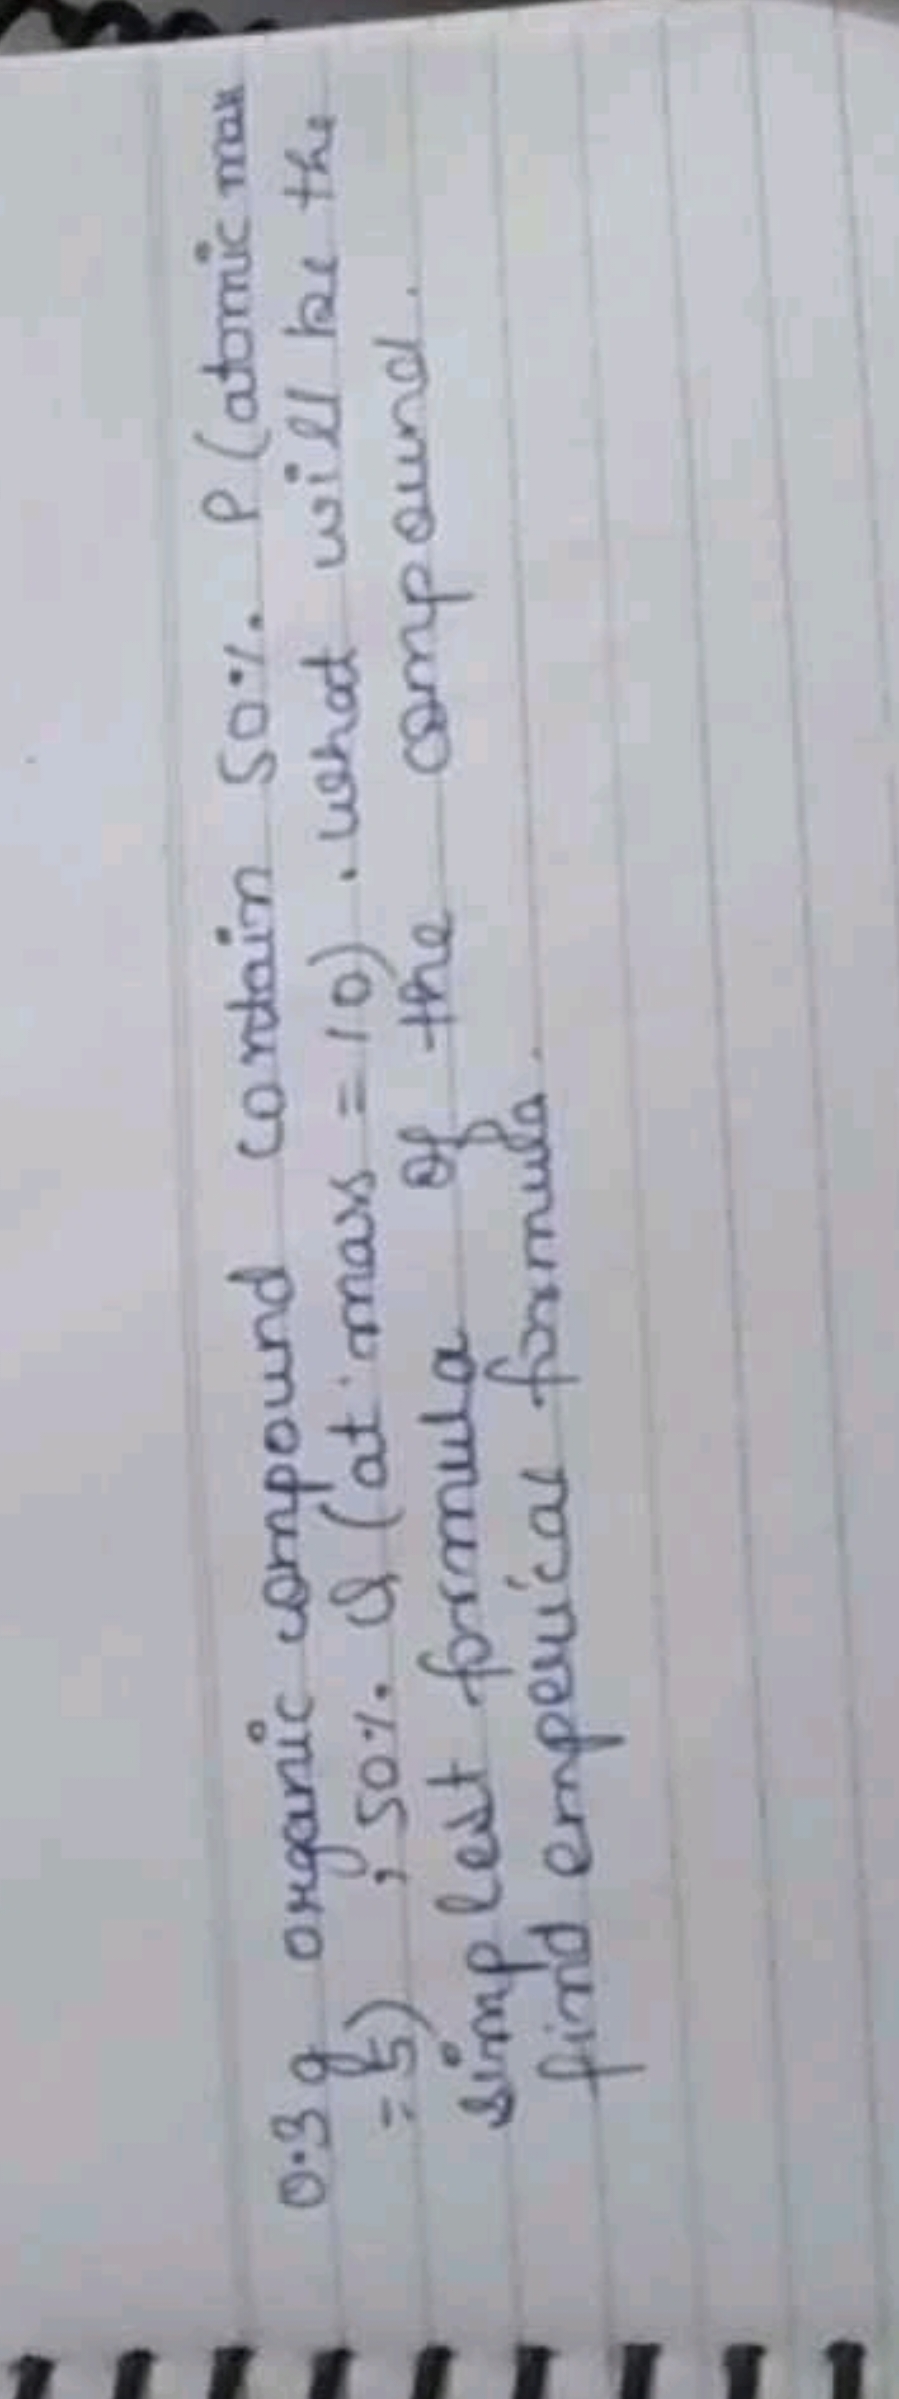 0.3 g organic compound contain 50%. P (atomic mass
= 5) , 50%. Q (at. mass = 10) . what will be the
simplest formula of the compound.
find emperical formula.